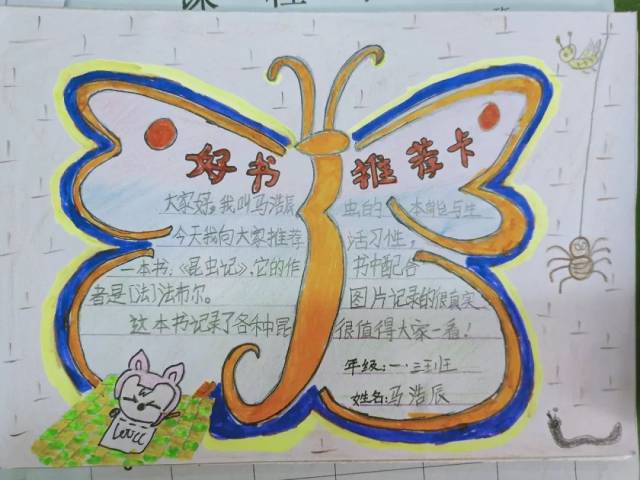 好书推荐卡
大家好,我叫马浩辰
今天我向大家推荐
一本书:《昆虫记》,它的作
者是[法]法布尔。
这本书记录了各种昆
虫的本能与生
活习性,
书中配合
图片记录的很真实
很值得大家一看!
年级:一·三班
姓名:马浩辰